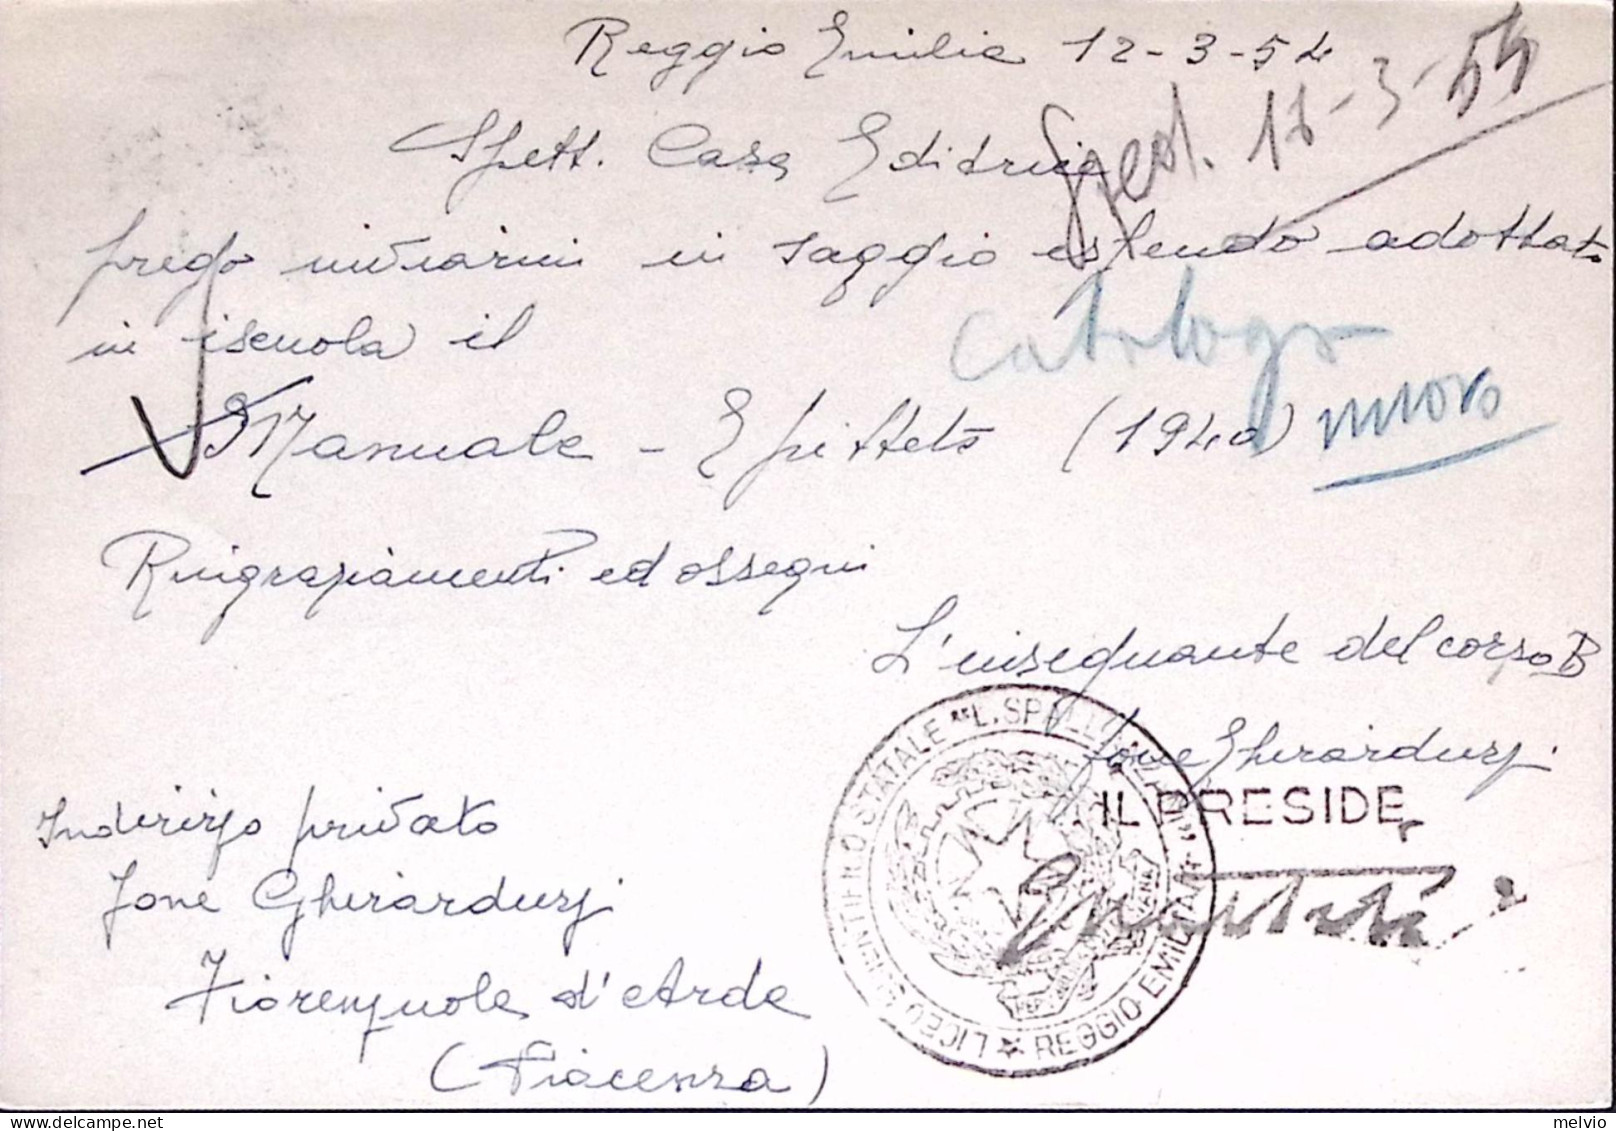 Reggio Emilia 12-3-54
Sped. 18-3-54
Spett. Casa Editrice
prego inviarmi in saggio essendo adottato
in iscuola il
Catalogo
nuovo
Manuale - Epitteto (1940)
Ringraziamenti ed ossequi
L'insegnante del corso B
Jone Ghirarduzzi
IL PRESIDE
LICEO SCIENTIFICO STATALE "L. SPALLANZANI" REGGIO EMILIA
Indirizzo privato
Jone Ghirarduzzi
Fiorenzuola d'Arda
(Piacenza)
melvio